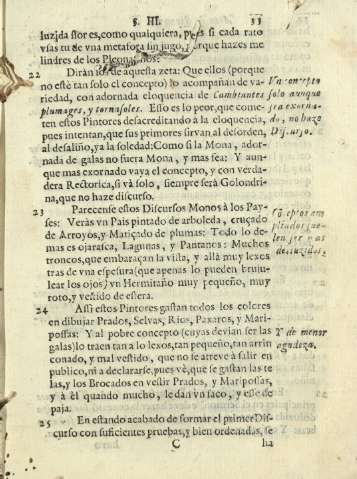 §. III. 33
luzida flores, como qualquiera, pues si cada rato
vsas tu de vna metafora sin jugo, porque hazes me
lindres de los Pleonasmos?
22 Diràn los de aquesta zeta: Que ellos (porque
no estè tan solo el concepto) lo acompañan de va-
riedad, con adornada eloquencia de Cambiantes
plumages, y tornasoles. Esso es lo peor, que come-
ten estos Pintores desacreditando à la eloquencia,
pues intentan, que sus primores sirvan al desorden,
al desaliño, ya la soledad: Como si la Mona, ador-
nada de galas no fuera Mona, y mas fea: Y aun-
que mas exornado vaya el concepto, y con verda
dera Rectorica, si và solo, siempre serà Golondri-
na, que no haze discurso.
Vn concepto
solo aunque
sea exorna-
do, no haze
Discurso.
23 Parecense estos Discursos Monos à los Pay-
ses: Veràs vn Pais pintado de arboleda, cruçado
de Arroyos, y Matiçado de plumas: Todo lo de-
mas es ojarasca, Lagunas, y Pantanos: Muchos
troncos, que embaraçan la vista, y allà muy lexos
tras de vna espesura (que apenas lo pueden bruju-
lear los ojos) vn Hermitaño muy pequeño, muy
roto, y vestido de estera.
24 Assi estos Pintores gastan todos los colores
en dibujar Prados, Selvas, Rios, Paxaros, y Mari-
possas: Y al pobre concepto (cuyas devian ser las
galas) lo traen tan a lo lexos, tan pequeño, tan arrin
conado, y mal vestido, que no se atreve à salir en
publico, ni a declararse, pues vè, que se gastan las te
las, y los Brocados en vestir Prados, y Mariposas,
y à èl quando mucho, le dan vn saco, y esse de
paja.
Y de menor
agudeza.
25 En estando acabado de formar el primer Dis-
curso con suficientes pruebas, y bien ordenadas, se
C ha